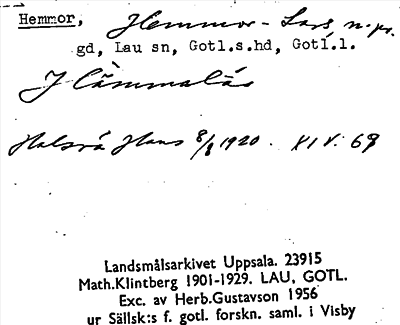 Hemmor, Hemmor - Lars n. pr.
gd, Lau sn, Gotl.s.hd, Gotl.l.
J Lämmalås
Hans 8/8 1920. XIV. 69
Landsmålsarkivet Uppsala. 23915
Math.Klintberg 1901-1929. LAU, GOTL.
Exc. av Herb.Gustavson 1956
ur Sällsk:s f. gotl. forskn. saml. i Visby